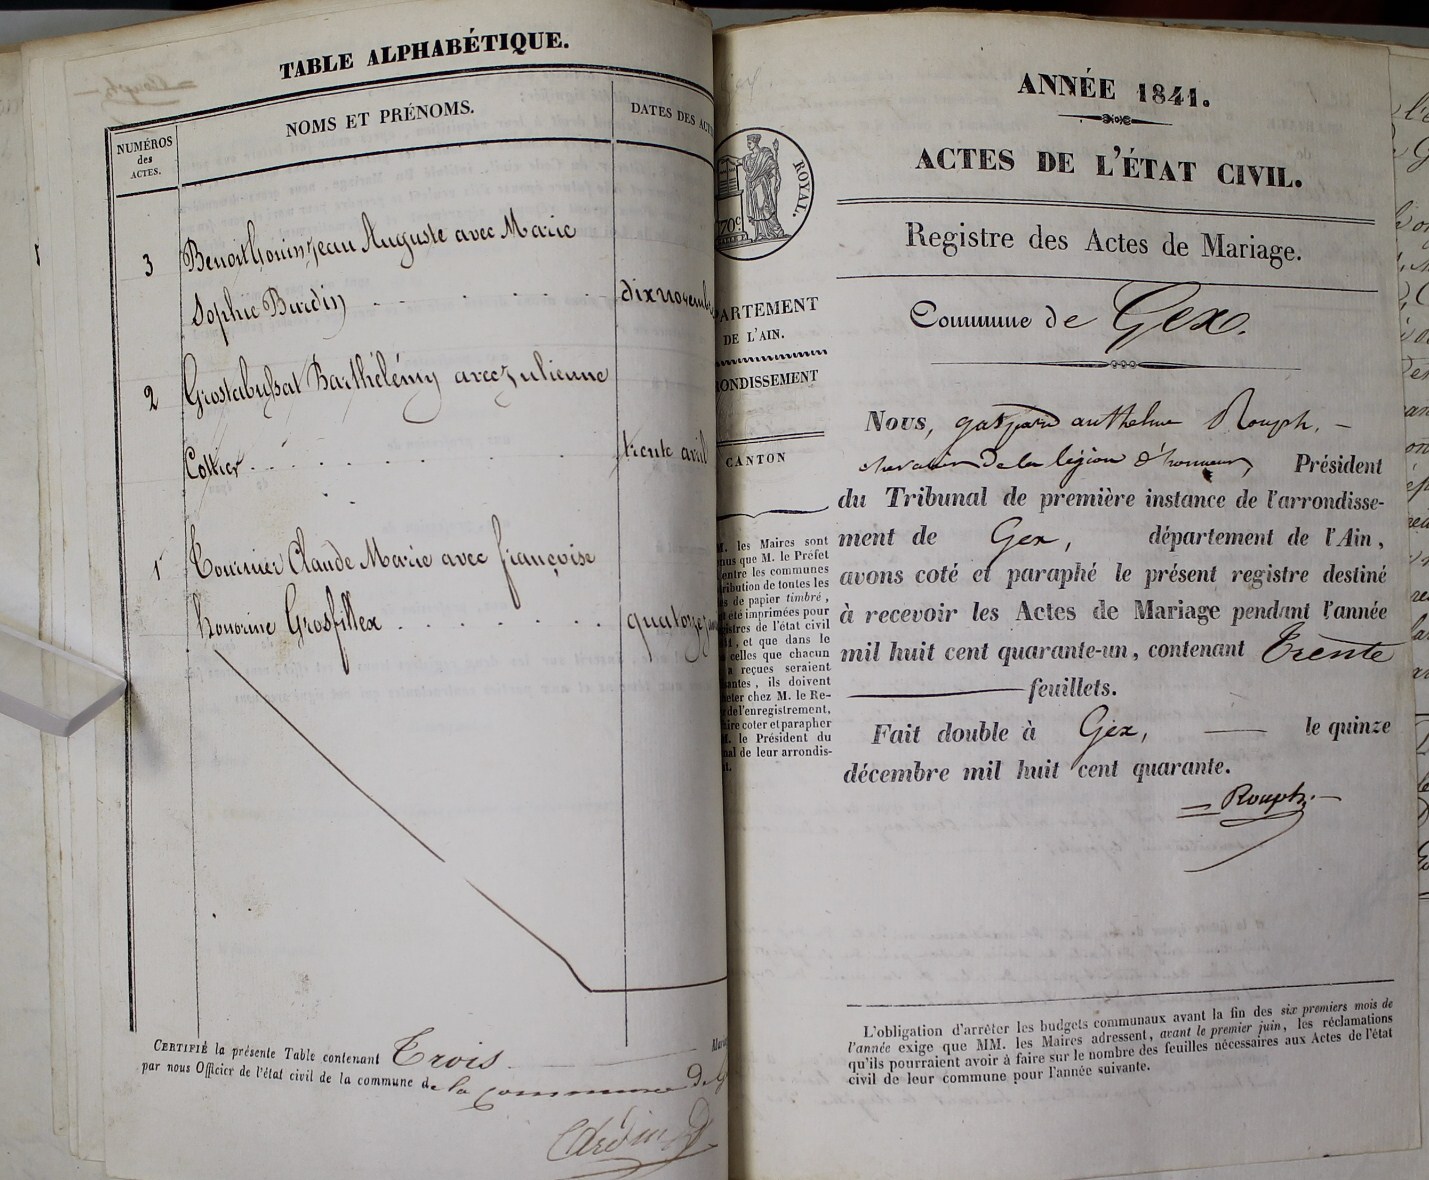 TABLE ALPHABÉTIQUE.
NUMÉROS
des
ACTES.
NOMS ET PRÉNOMS.
DATES DES ACT
3 Benoit Gonin, Jean Auguste avec Marie
Sophie Burdin dix novemb
2 Grostabussat Barthélémy avec Julienne
Cottier trente avril
1 Tournier Claude Marie avec françoise
honorine Grosfillex quatorze
CERTIFIÉ la présente Table contenant Trois
par nous Officier de l'état civil de la commune de la commune de
ROYAL.
70c
PARTEMENT
DE L'AIN.
RONDISSEMENT
CANTON
M. les Maires sont
nus que M. le Préfet
entre les communes
ribution de toutes les
s de papier timbré,
été imprimées pour
istres de l'état civil
, et que dans le
celles que chacun
a reçues seraient
santes, ils doivent
eter chez M. le Re-
de l'enregistrement,
ire coter et parapher
M. le Président du
nal de leur arrondis-
t.
ANNÉE 1841.
ACTES DE L'ÉTAT CIVIL.
Registre des Actes de Mariage.
Commune de Gex.
Nous, gaspard anthelme Rouph,
chevalier de la légion d'honneur, Président
du Tribunal de première instance de l'arrondisse-
ment de Gex, département de l'Ain,
avons coté et paraphé le présent registre destiné
à recevoir les Actes de Mariage pendant l'année
mil huit cent quarante-un, contenant Trente
feuillets.
Fait double à Gex, le quinze
décembre mil huit cent quarante.
Rouph.
L'obligation d'arrêter les budgets communaux avant la fin des six premiers mois de
l'année exige que MM. les Maires adressent, avant le premier juin, les réclamations
qu'ils pourraient avoir à faire sur le nombre des feuilles nécessaires aux Actes de l'état
civil de leur commune pour l'année suivante.